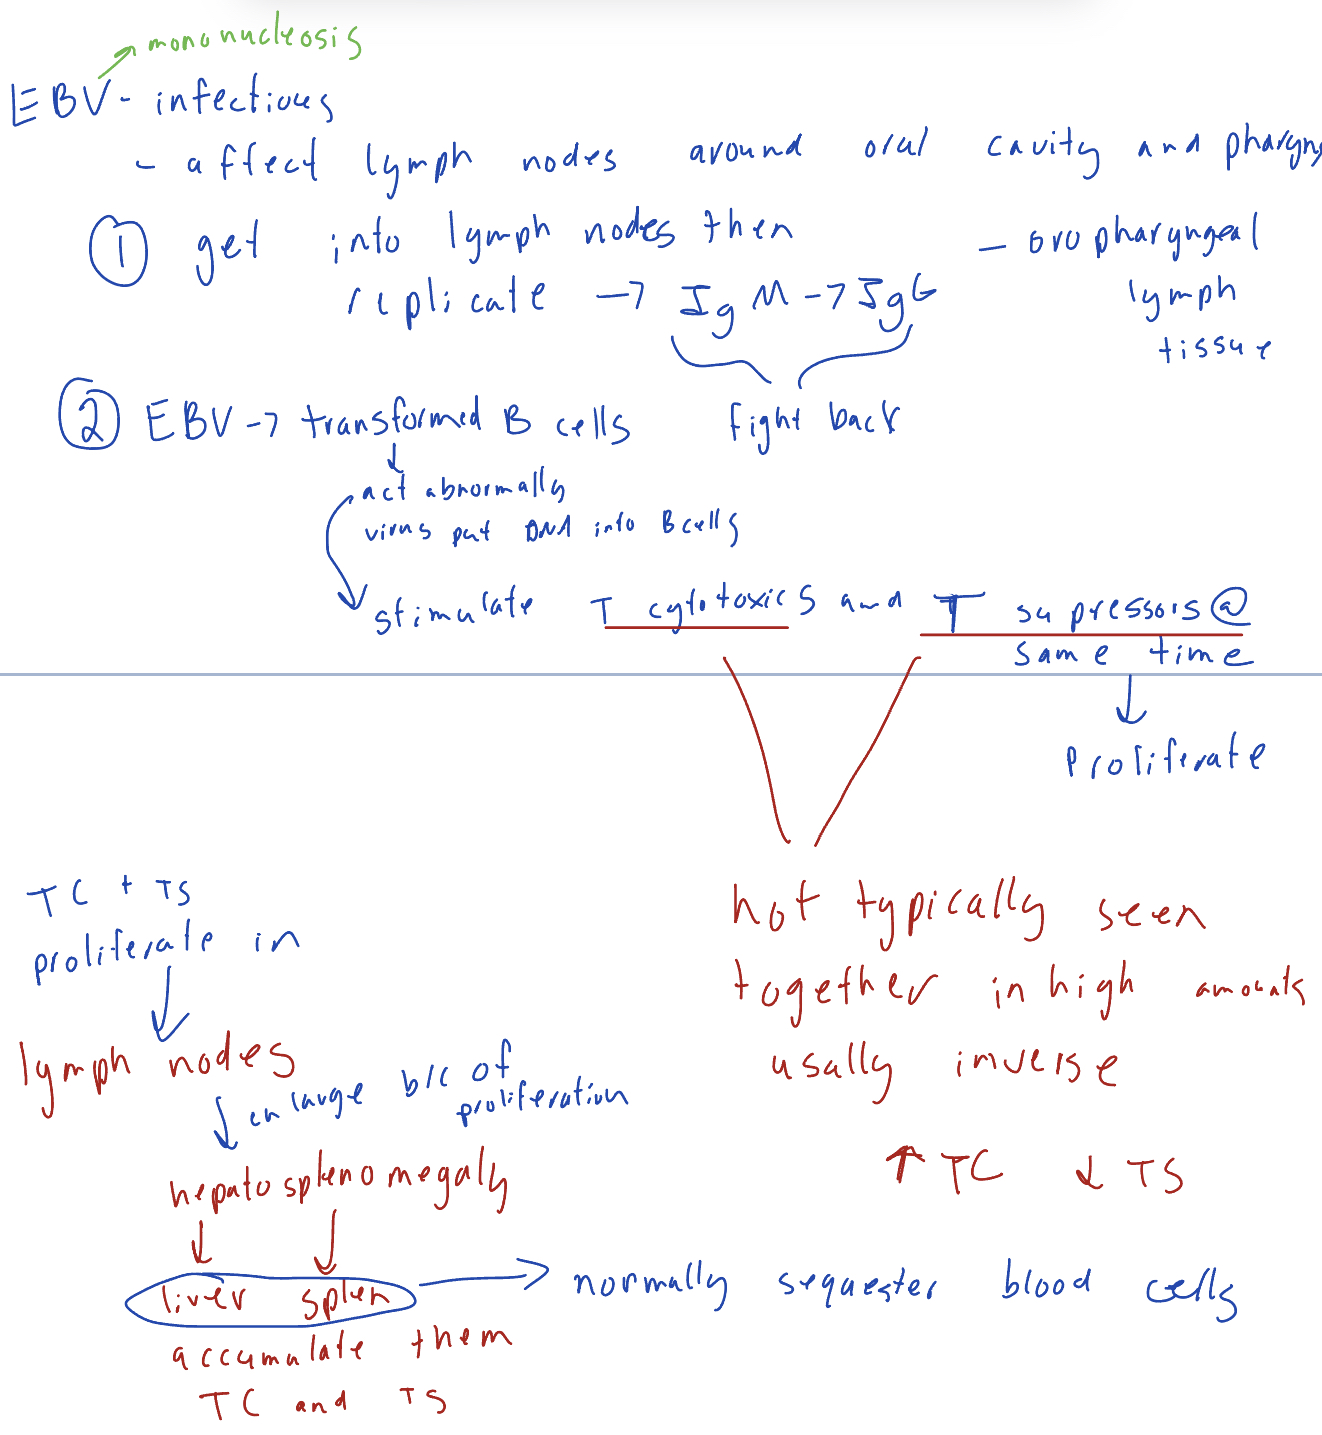 mononucleosis
EBV - infectious
- affect lymph nodes around oral cavity and pharynx
① get into lymph nodes then
replicate → IgM → IgG
- oropharyngeal
lymph
tissue
fight back
② EBV → transformed B cells
act abnormally
virus put DNA into B cells
stimulate T cytotoxics and T supressors @
same time
proliferate
not typically seen
together in high amounts
usally inverse
↑ TC ↓ TS
TC + TS
proliferate in
lymph nodes
enlarge b/c of
proliferation
hepatosplenomegaly
liver splen → normally sequester blood cells
accumulate them
TC and TS